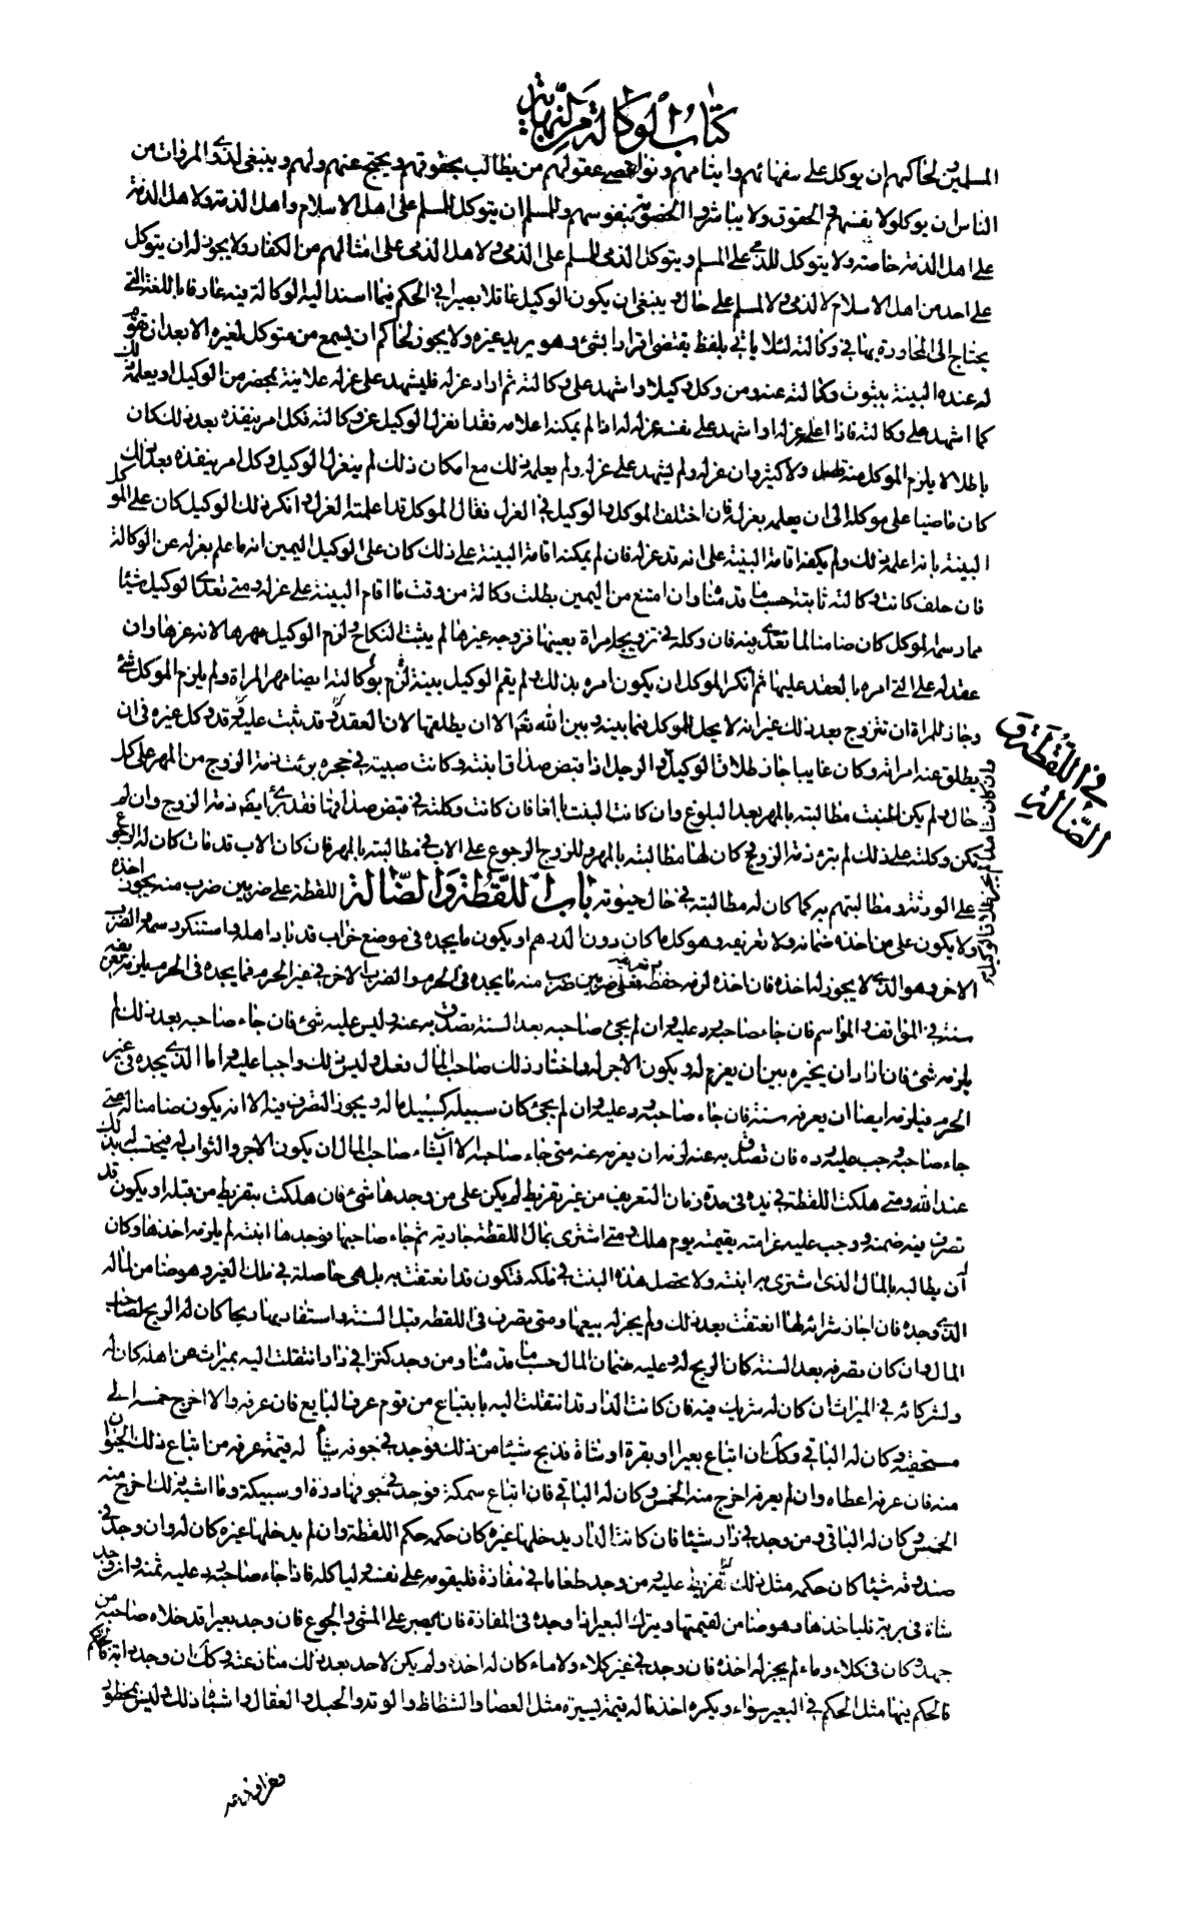 كتاب الوكالة من النهاية
المسلمين لحاكمهم ان يوكل على سفهائهم وايتامهم ونواقصى عقولهم من يطالب بحقوقهم ويحتج عنهم ولهم وينبغى لذوى المروات من
الناس ان يوكلوا لانفسهم فى الحقوق ولا يباشروا الخصومة بنفوسهم وللمسلم ان يتوكل للمسلم على اهل الاسلام واهل الذمة ولاهل الذمة
على اهل الذمة خاصة ولا يتوكل للذمى على المسلم ويتوكل الذمى للمسلم على الذمى ولاهل الذمى على امثالهم من الكفار ولا يجوز له ان يتوكل
على احد من اهل الاسلام لا لذمى ولا لمسلم على حال وينبغى ان يكون الوكيل عاقلا بصيرا فى الحكم فيما اسند اليه الوكالة فيه عارفا باللغة التى
يحتاج الى المحاورة بها فى وكالته لئلا ياتى بلفظ يقتضى اقرارا بشئ وهو يريد غيره ولا يجوز لحاكم ان يسمع من متوكل لغيره الا بعد ان تقوم
له عنده البينة بثبوت وكالته عنه ومن وكل وكيلا واشهد على وكالته ثم اراد عزله فليشهد على عزله علانية بمحضر من الوكيل او يعلمه ذلك
كما اشهد على وكالته فاذا اعلمه عزله او اشهد على نفسه بعزله له اذا لم يمكنه اعلامه فقد انعزل الوكيل عن وكالته فكل امر ينفذه بعد ذلك كان
باطلا لا يلزم الموكل منه قليل ولا كثير وان عزله ولم يشهد على عزله ولم يعلمه ذلك مع امكان ذلك لم ينعزل الوكيل وكل امر ينفذه بعد ذلك
كان ماضيا على موكله الى ان يعلمه بعزله فان اختلف الموكل والوكيل فى العزل فقال الموكل قد اعلمته العزل وانكر ذلك الوكيل كان على الموكل
البينة بانه اعلمه ذلك ولم يكفه اقامة البينة على انه قد عزله فان لم يمكنه اقامة البينة على ذلك كان على الوكيل اليمين انه ما علم بعزله عن الوكالة
فان حلف كانت وكالته ثابتة حسب ما قدمناه وان امتنع من اليمين بطلت وكالته من وقت ما اقام البينة على عزله ومتى تعدى الوكيل شيئا
مما رسمه الموكل كان ضامنا لما تعدى فيه فان وكله فى تزويج امراة بعينها فزوجه غيرها لم يثبت النكاح ولزم الوكيل مهرها لانه غرها وان
عقد له على التى امره بالعقد عليها ثم انكر الموكل ان يكون امره بذلك ولم يقم الوكيل بينة لزم بوكالته ايضا مهر المراة ولم يلزم الموكل شئ
وجاز للمراة ان تتزوج بعد ذلك غير انه لا يحل للموكل فيما بينه وبين الله تعالى الا ان يطلقها لان العقد قد ثبت عليه وقد وكل غيره فى ان
يطلق عنه امراته وكان غايبا جاز طلاق الوكيل والرجل اذا قبض صداق ابنته وكانت صبية فى حجره برئت ذمة الزوج من المهر على كل
حال ولم يكن للبنت مطالبته بالمهر بعد البلوغ وان كانت البنت بالغا فان كانت وكلته فى قبض صداقها فقد برئ ايضا ذمة الزوج وان لم
تكن وكلته على ذلك لم تبره ذمة الزوج وكان لها مطالبته بالمهر وللزوج الرجوع على الاب فى مطالبته بالمهر فان كان الاب قد مات كان له الرجوع
على الورثة ومطالبتهم به كما كان له مطالبته فى حال حيوته باب اللقطة والضالة اللقطة على ضربين ضرب منه يجوز اخذه
ولا يكون على من اخذه ضمانه ولا تعريفه وهو كل ما كان دون الدرهم او يكون ما يجده فى موضع خراب قد باد اهله واستنكر رسمه والضرب
الاخر وهو الذى لا يجوز له اخذه فان اخذه لزمه حفظه وتعريفه فعلى ضربين ضرب منه ما يجده فى الحرم والضرب الاخر فى غير الحرم فما يجده فى الحرم يلزمه تعريفه
سنة فى المواقف والمواسم فان جاء صاحبه رد عليه وان لم يجئ صاحبه بعد السنة تصدق به عنه وليس عليه شئ فان جاء صاحبه بعد ذلك لم
يلزمه شئ فان اراد ان يخيره بين ان يغرم له ويكون الاجر له واختار ذلك صاحب المال فعل وليس ذلك واجبا عليه واما الذى يجده فى غير
الحرم فيلزمه ايضا ان يعرفه سنة فان جاء صاحبه رد عليه وان لم يجئ كان سبيله كسبيل ماله ويجوز التصرف فيه الا انه يكون ضامنا له متى
جاء صاحبه وجب عليه رده فان تصدق به عنه لزمه ان يغرمه عنه متى جاء صاحبه الا ان يشاء صاحب المال ان يكون الاجر والثواب له فيحتسب له بذلك
عند الله ومتى هلكت اللقطة فى يده فى مدة زمان التعريف من غير تفريط لم يكن على من وجدها شئ فان هلكت بتفريط من قبله او يكون قد
تصرف فيه ضمنه ووجب عليه غرامته بقيمته يوم هلك ومتى اشترى بمال اللقطة جارية ثم جاء صاحبها فوجدها ابنته لم يلزمه اخذها وكان
ان يطالبه بالمال الذى اشترى به ابنته ولا تحصل هذه البنت فى ملكه فتكون قد انعتقت به بل هى حاصلة فى ملك الغير وهو ضامن لماله
الذى وجده فان اجاز شرائه لها انعتقت بعد ذلك ولم يجز له بيعها ومتى تصرف فى اللقطه قبل السنة واستفاد بها ربحا كان له الربح لصاحب
المال وان كان تصرفه بعد السنة كان الربح له وعليه ضمان المال حسب ما قدمناه ومن وجد كنزا فى دار انتقلت اليه بميراث عن اهله كان له
ولشركائه فى الميراث ان كان له شريك فيه فان كانت الدار قد انتقلت اليه بابتياع من قوم عرف البايع فان عرفه والا اخرج خمسه الى
مستحقيه وكان له الباقى وكك ان ابتاع بعيرا او بقرة او شاة فذبح شيئا من ذلك فوجد فى جوفه شيأ له قيمة عرفه من ابتاع ذلك الحيوان
منه فان عرفه اعطاه وان لم يعرفه اخرج منه الخمس وكان له الباقى فان ابتاع سمكة فوجد فى جوفها درة او سبيكة وما اشبه ذلك اخرج منه
الخمس وكان له الباقى ومن وجد فى دار شيئا فان كانت الدار يدخلها غيره كان حكمه حكم اللقطة وان لم يدخلها غيره كان له وان وجد فى
صندوقه شيئا كان حكمه مثل ذلك ومن وجد طعاما فى مفازة فليقومه على نفسه ولياكله فاذا جاء صاحبه رد عليه ثمنه وان وجد
شاة فى برية فلياخذها وهو ضامن لقيمتها ويترك البعير اذا وجده فى المفازة فان يصبر على المشى والجوع فان وجد بعيرا قد خلاه صاحبه من
جهد وكان فى كلاء وماء لم يجز له اخذه فان وجده فى غير كلاء ولا ماء كان له اخذه ولم يكن لاحد بعد ذلك منازعته وكك ان وجد دابة
فالحكم فيها مثل الحكم فى البعير سواء ويكره اخذ ما له قيمة يسيرة مثل العصا والشظاظ والوتد والحبل والعقال واشباه ذلك وليس بمحظور
فى اللقطة و
الضالة